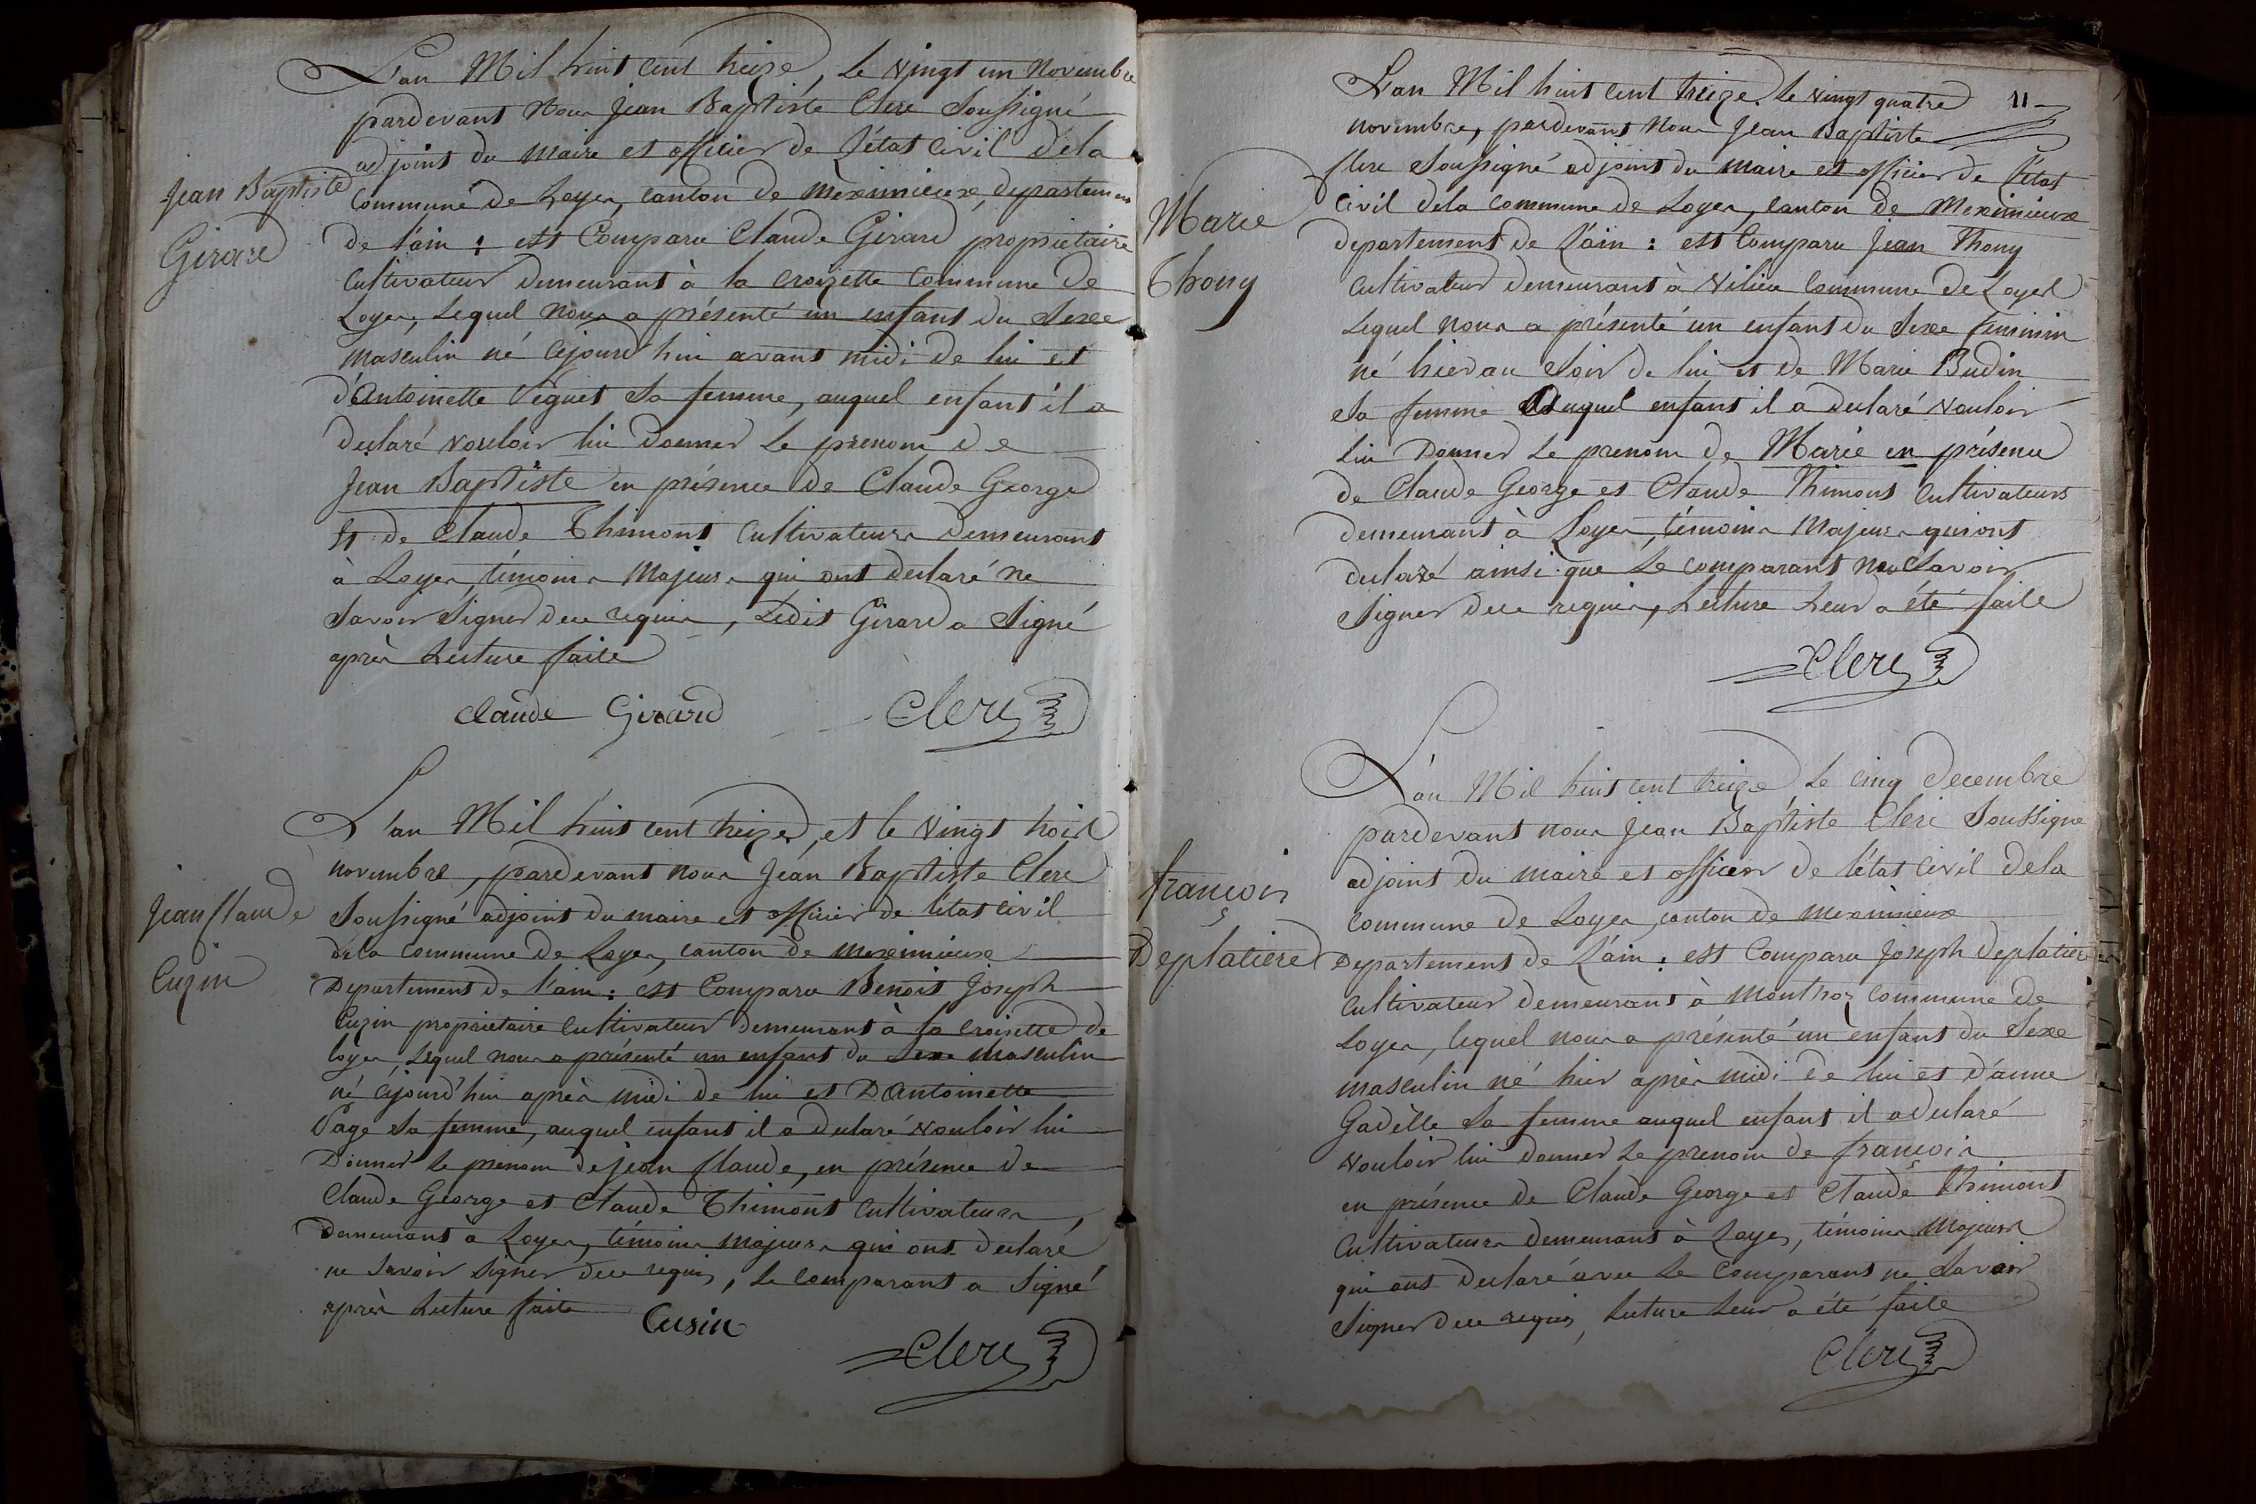 L'an Mil huit cent treize, le vingt un Novembre
pardevant Nous Jean Baptiste Clerc Soussigné
adjoint du maire et officier de l'état Civil dela
Jean Baptiste
Girard
Commune de Loyes, canton de Meximieux, departement
de l'ain : est Comparu Claude Girard propriétaire
Cultivateur demeurant à la croizette Commune de
Loyes, Lequel nous a présenté un enfant du Sexe
masculin né cejourd'hui avant midi de lui et
d'antoinette Veguet Sa femme, auquel enfant il a
declaré vouloir lui donner le prenom de
Jean Baptiste en présence de Claude George
Et de Claude Thimont Cultivateurs demeurant
à Loyes, témoins Majeurs qui ont declaré ne
Savoir Signer dece requis, Ledit Girard a Signé
après Lecture faite
Claude Girard Clerc
L'an Mil huit cent treize, et le vingt trois
novembre, pardevant nous Jean Baptiste Clerc
Jean Claude
Cuzin
Soussigné adjoint du maire et officier de l'état civil
dela commune de Loyes, canton de meximieux
Departement de l'ain : est Comparu Benoit Joseph
Cuzin propriétaire Cultivateur demeurant à la Croisette de
loyes, Lequel nous a présenté un enfant du Sexe masculin
né cejourd'hui après midi de lui et D'Antoinette
Page Sa femme, auquel enfant il a declaré vouloir lui
Donner le prenom de jean Claude, en présence de
Claude George et Claude Thimont Cultivateurs,
Demeurant à Loyes, témoins majeurs qui ont declaré
ne Savoir Signer dece requis, Le Comparant a Signé
après Lecture faite
Cusin
Clerc
11
L'an Mil huit cent treize. le vingt quatre
novembre, pardevant Nous Jean Baptiste
Clerc Soussigné adjoint du maire et officier de l'état
Marie
Thony
Civil dela Commune de Loyes, canton de Meximieux
departement de l'ain : est Comparu Jean Thony
Cultivateur demeurant à vilieu Commune de Loyes
Lequel nous a présenté un enfant du Sexe feminin
né hier au Soir de lui et de Marie Budin
Sa femme auquel enfant il a declaré vouloir
lui donner le prenom de Marie en présence
de Claude George et Claude Thimont Cultivateurs
demeurant à Loyes, témoins Majeurs qui ont
declaré ainsi que le comparant ne Savoir
Signer dece requis, Lecture Leur a été faite
Clerc
L'an Mil huit cent treize le cinq decembre
pardevant nous Jean Baptiste Clerc Soussigné
adjoint du maire et officier de l'état civil dela
françois
Deplatiere
Commune de Loyes, canton de meximieux
Departement de l'ain : est Comparu Joseph deplatiere
Cultivateur demeurant à monthoz Commune de
Loyes, lequel nous a présenté un enfant du Sexe
masculin né hier après midi de lui et d'anne
Gadelle Sa femme auquel enfant il a declaré
vouloir lui donner le prenom de françois
en présence de Claude George et Claude Thimont
Cultivateurs demeurant à Loyes, témoins Majeurs
qui ont declaré avec le Comparant ne Savoir
Signer dece requis, Lecture Leur a été faite
Clerc